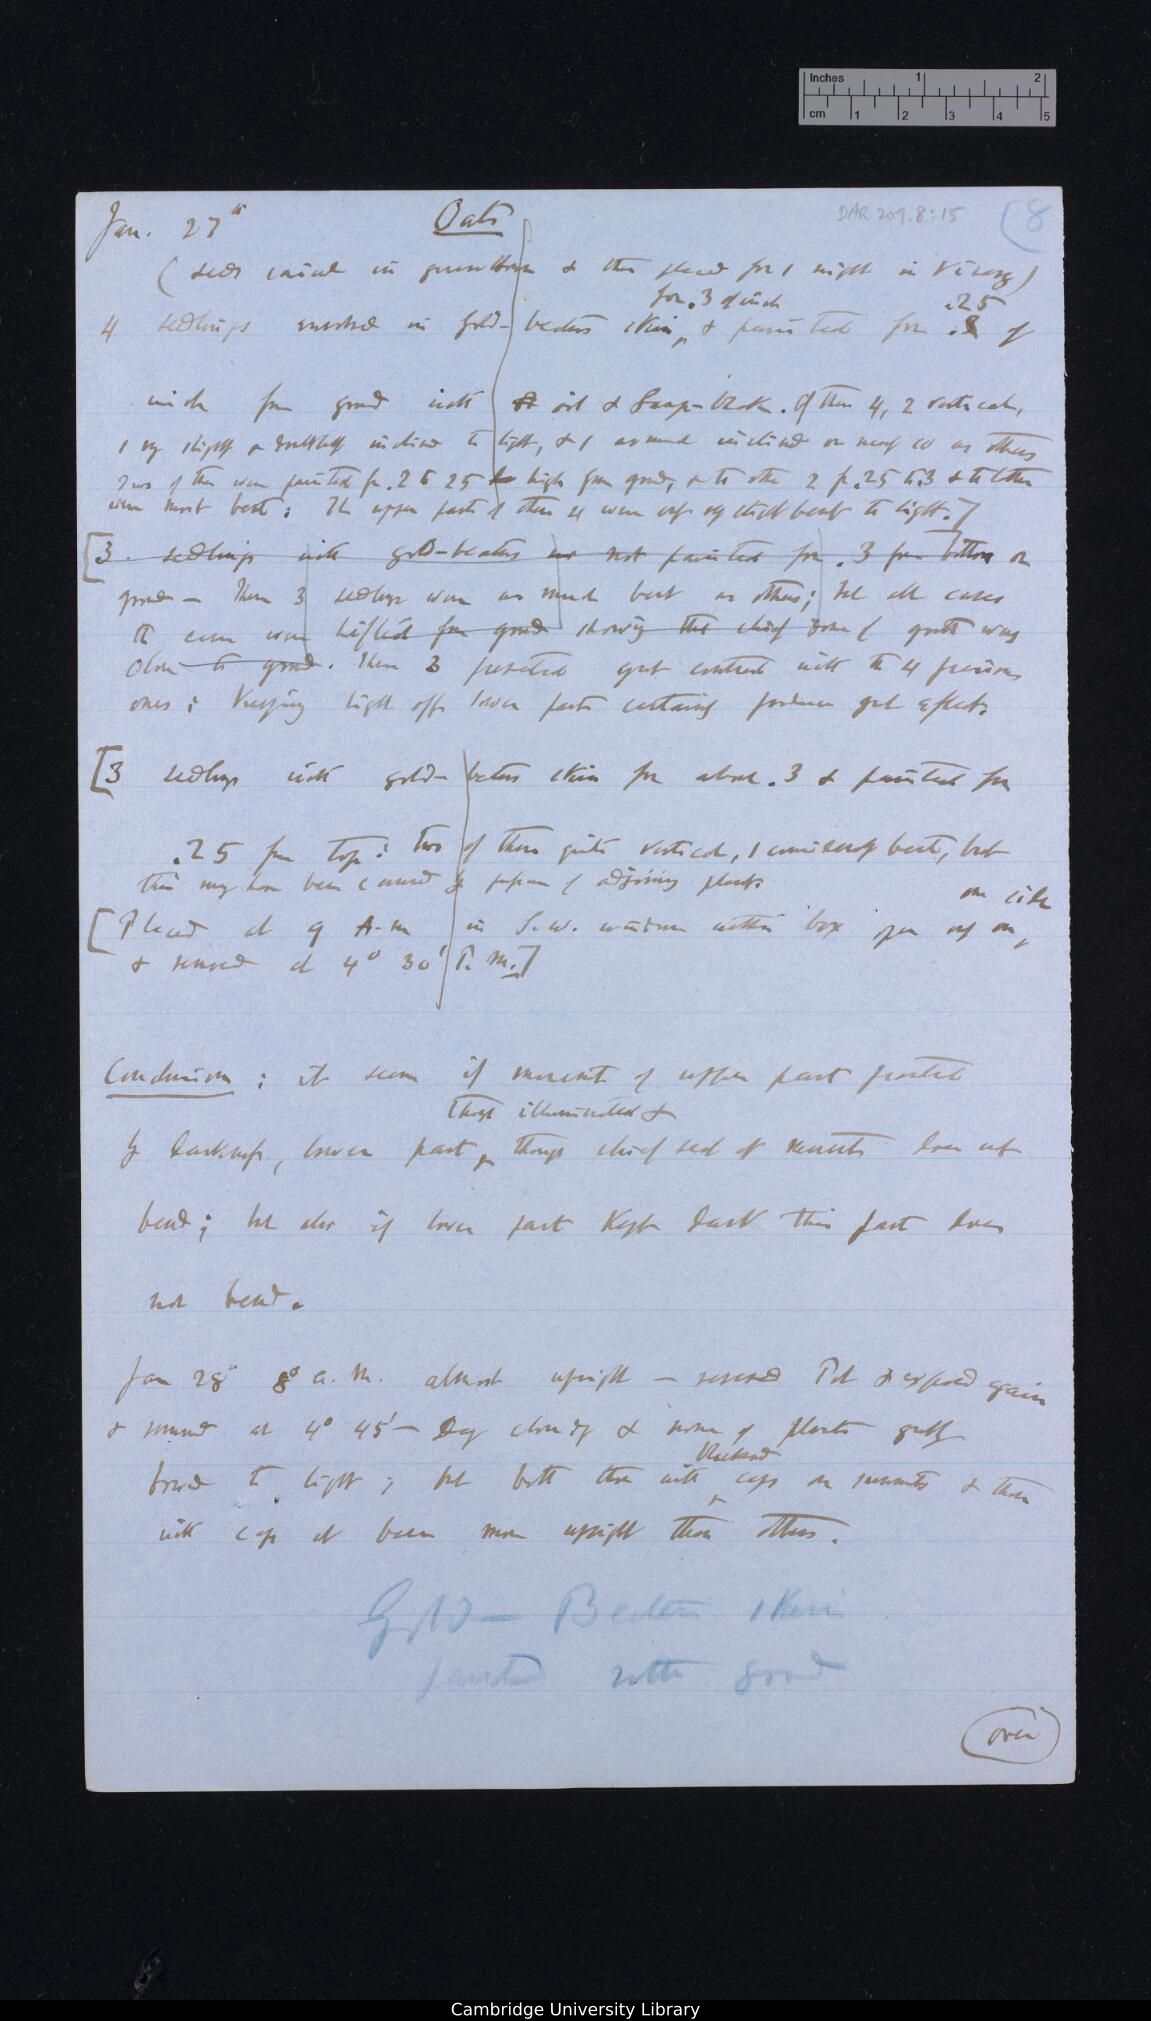 Inches 1 2
cm 1 2 3 4 5
DAR 209.8:15 (8
Jan. 27th Oats
(seeds raised in greenhouse & then placed for 1 night in Vinery)
for .3 of inch .25
4 seedlings enclosed in gold-beaters skin, & painted for of
inch from ground with oil & Lamp-black. Of these 4, 2 vertical,
1 very slightly & doubtfully inclined to light, & 1 as much inclined or nearly so as others
Two of these were painted for .2 to 25 high from ground, & the other 2 for .25 to .3 & the latter
were most bent: The upper parts of these 4 were only very slightly bent to light.]
[3. seedlings with gold-beaters not painted for .3 from bottom or
ground — These 3 seedlings were as much bent as others; but in all cases
the were from ground showing that chief zone of growth was
close to ground. These 3 presented great contrast with the 4 previous
ones; Keeping light off lower parts certainly produces great effect.
[3 seedlings with gold-beaters skin for about .3 & painted for
.25 from top: two of these quite vertical, 1 considerably bent, but
this may have been caused by of adjoining plants
one side
[Placed at 9 A.m in S.W. window within box open only on,
& removed at 4° 30' P.M.]
Conclusion: it seems if movement of upper part prevented
though illuminated &
by darkness, lower part, though chief seat of movement does not
bend; but also if lower part kept dark this part does
not bend.
Jan 28th 8° a.m. almost upright — reversed Pot & exposed again
& removed at 4° 45' — Day cloudy & none of plants greatly
blackened
bowed to light; but both those with caps on summits & those
with caps at base more upright than others.
Gold-Beaters skin
painted rather good
over
Cambridge University Library